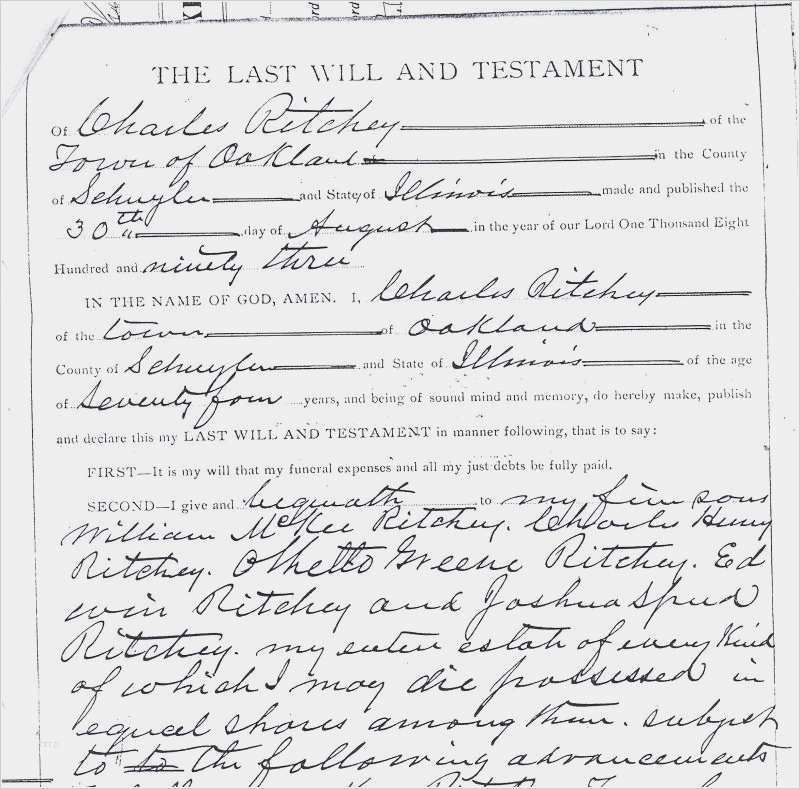 THE LAST WILL AND TESTAMENT
Of Charles Ritchey of the
Town of Oakland in the County
of Schuyler and State of Illinois made and published the
30th day of August in the year of our Lord One Thousand Eight
Hundred and ninety three
IN THE NAME OF GOD, AMEN. I, Charles Ritchey
of the town of Oakland in the
County of Schuyler and State of Illinois of the age
of Seventy four years, and being of sound mind and memory, do hereby make, publish
and declare this my LAST WILL AND TESTAMENT in manner following, that is to say:
FIRST—It is my will that my funeral expenses and all my just debts be fully paid.
SECOND—I give and bequeath to my five sons
William McKee Ritchey. Charles Henry
Ritchey. Othello Greene Ritchey. Ed
win Ritchey and Joshua Speed
Ritchey. my entire estate of every Kind
of which I may die possessed in
equal shares among them. subject
to to the following advancements